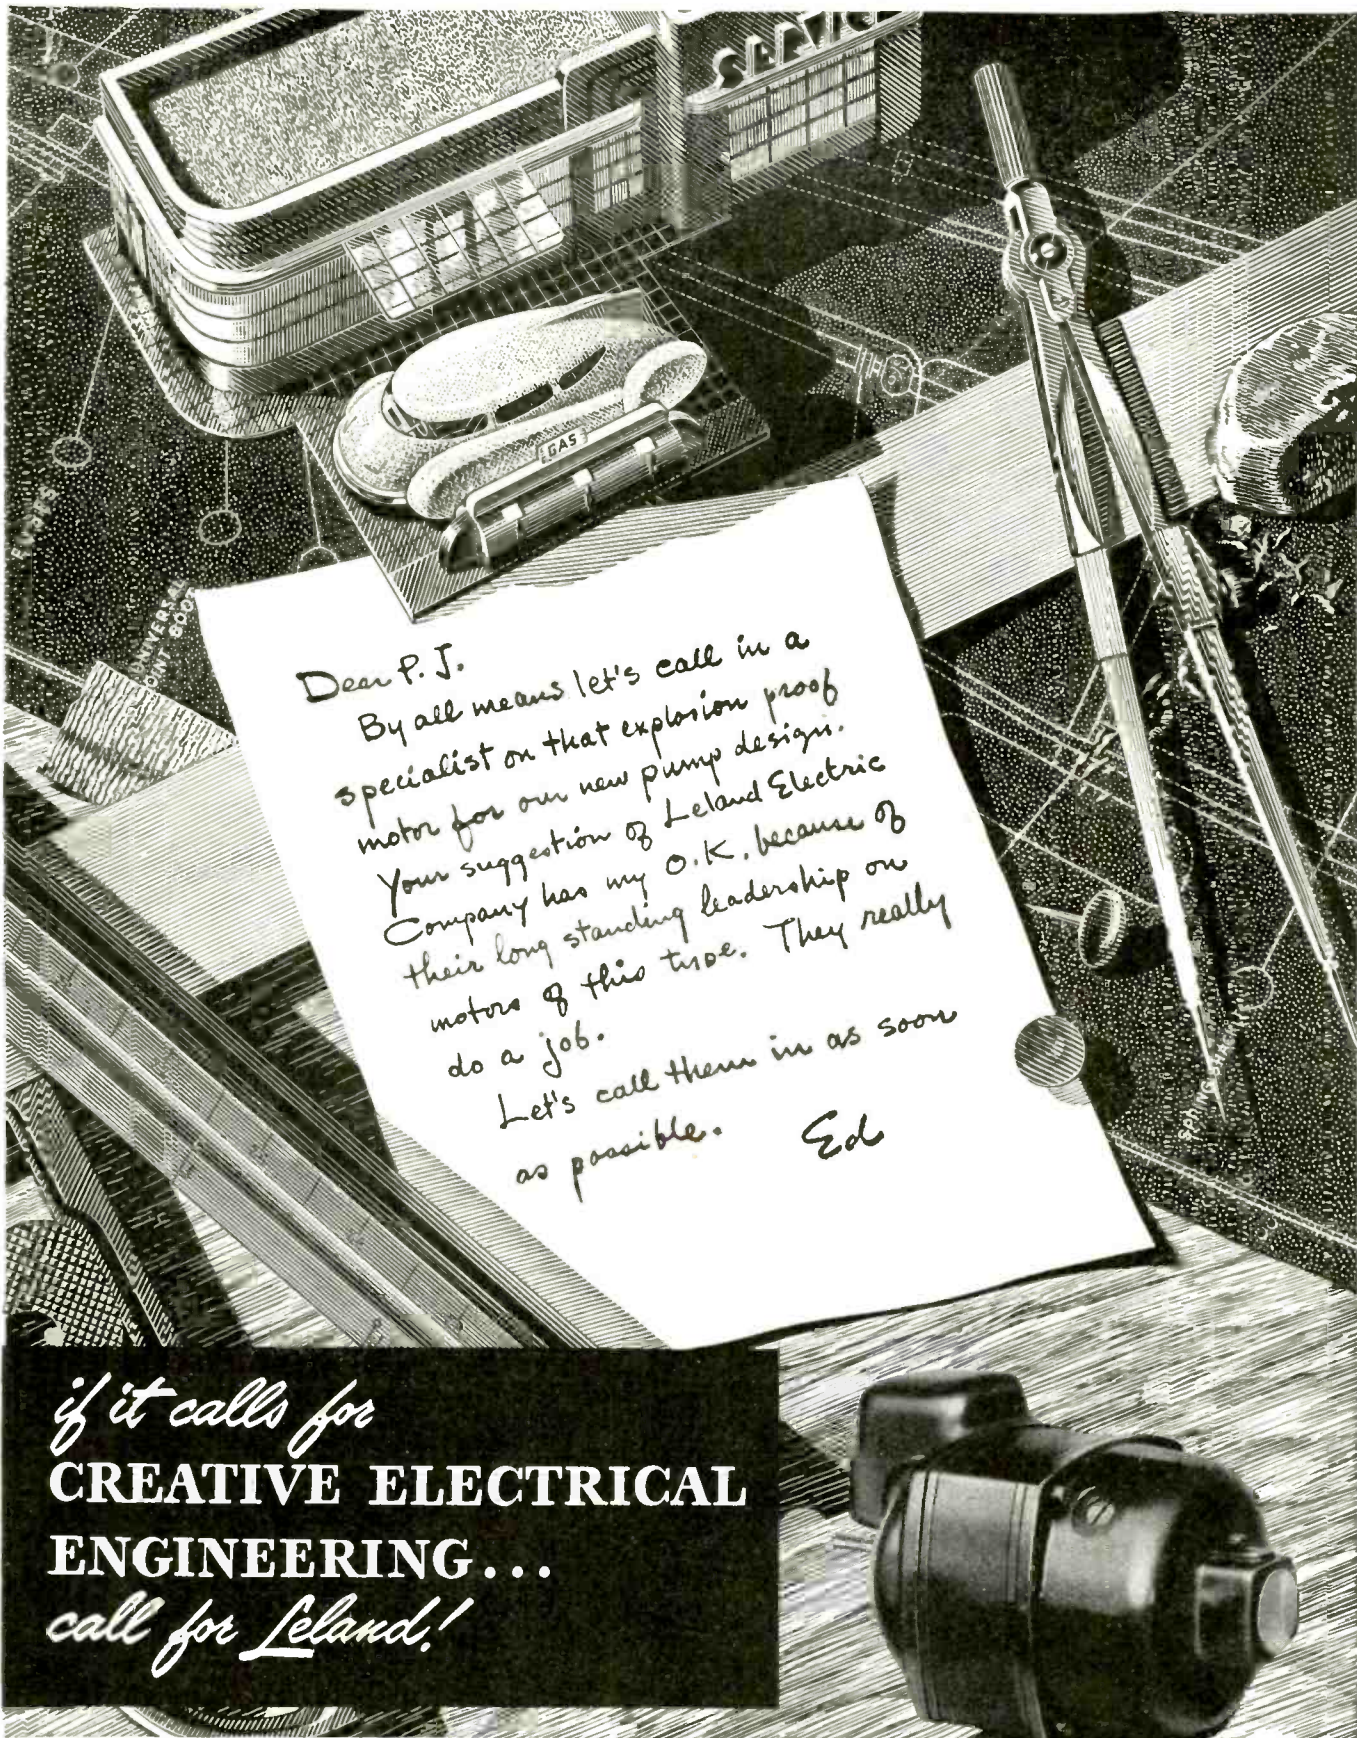 SERVICE
GAS
Dear P. J.
By all means let's call in a
specialist on that explosion proof
motor for our new pump design.
Your suggestion of Leland Electric
Company has my O.K. because of
their long standing leadership on
motors of this type. They really
do a job.
Let's call them in as soon
as possible.
Ed
if it calls for
CREATIVE ELECTRICAL
ENGINEERING...
call for Leland!